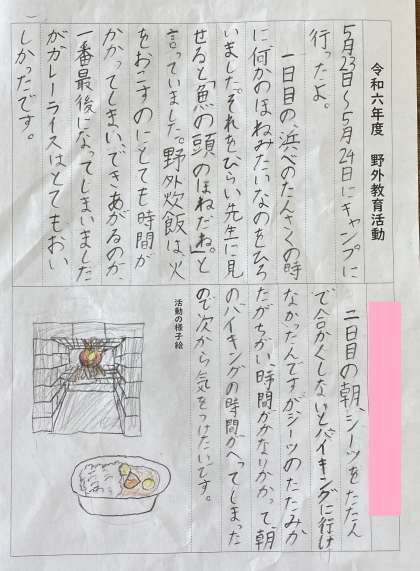 令和六年度 野外教育活動
5月23日〜5月24日にキャンプに
行ったよ。
一日目の、浜べのたんさくの時
に何かのほねみたいなのをひろ
いました。それをひらい先生に見
せると「魚の頭のほねだね。」と
言っていました。野外炊飯は、火
をおこすのにとても時間が
かかってしまい、できあがるのが、
一番最後になってしまいました
がカレーライスはとてもおい
しかったです。
二日目の朝、シーツをたたん
で合かくしないとバイキングに行け
なかったんですがシーツのたたみか
たがちがい、時間がかなりかかって、朝
のバイキングの時間がへってしまった
ので次から気をつけたいです。
活動の様子絵